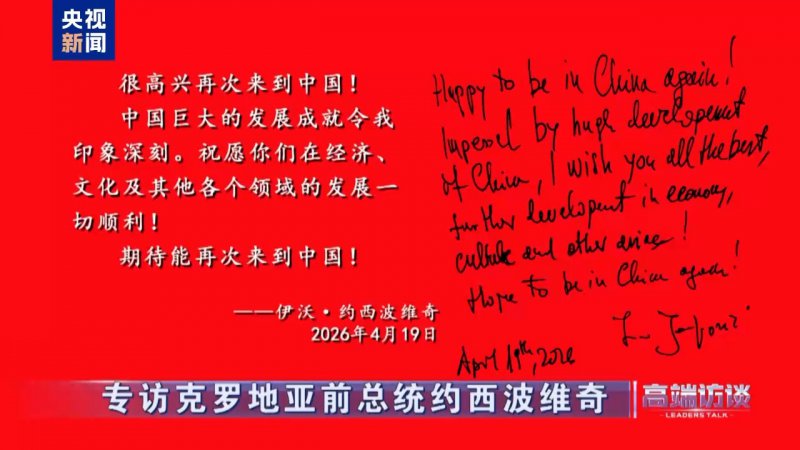 央视
新闻
很高兴再次来到中国！
中国巨大的发展成就令我
印象深刻。祝愿你们在经济、
文化及其他各个领域的发展一
切顺利！
期待能再次来到中国！
——伊沃·约西波维奇
2026年4月19日
Happy to be in China again!
by hugh development
of China, I wish you all the best,
further development in economy,
and other !
Hope to be in China again!
April 19th, 2026
专访克罗地亚前总统约西波维奇
高端访谈
LEADERS TALK